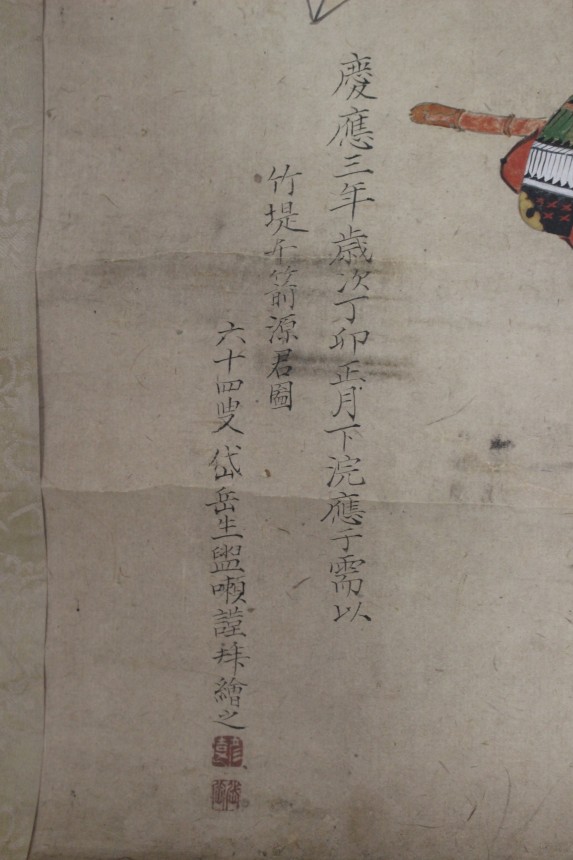 慶應三年歳次丁卯正月下浣應于需以
竹堤千箭源君圖
六十四叟岱岳生盥嗽謹拜繪之